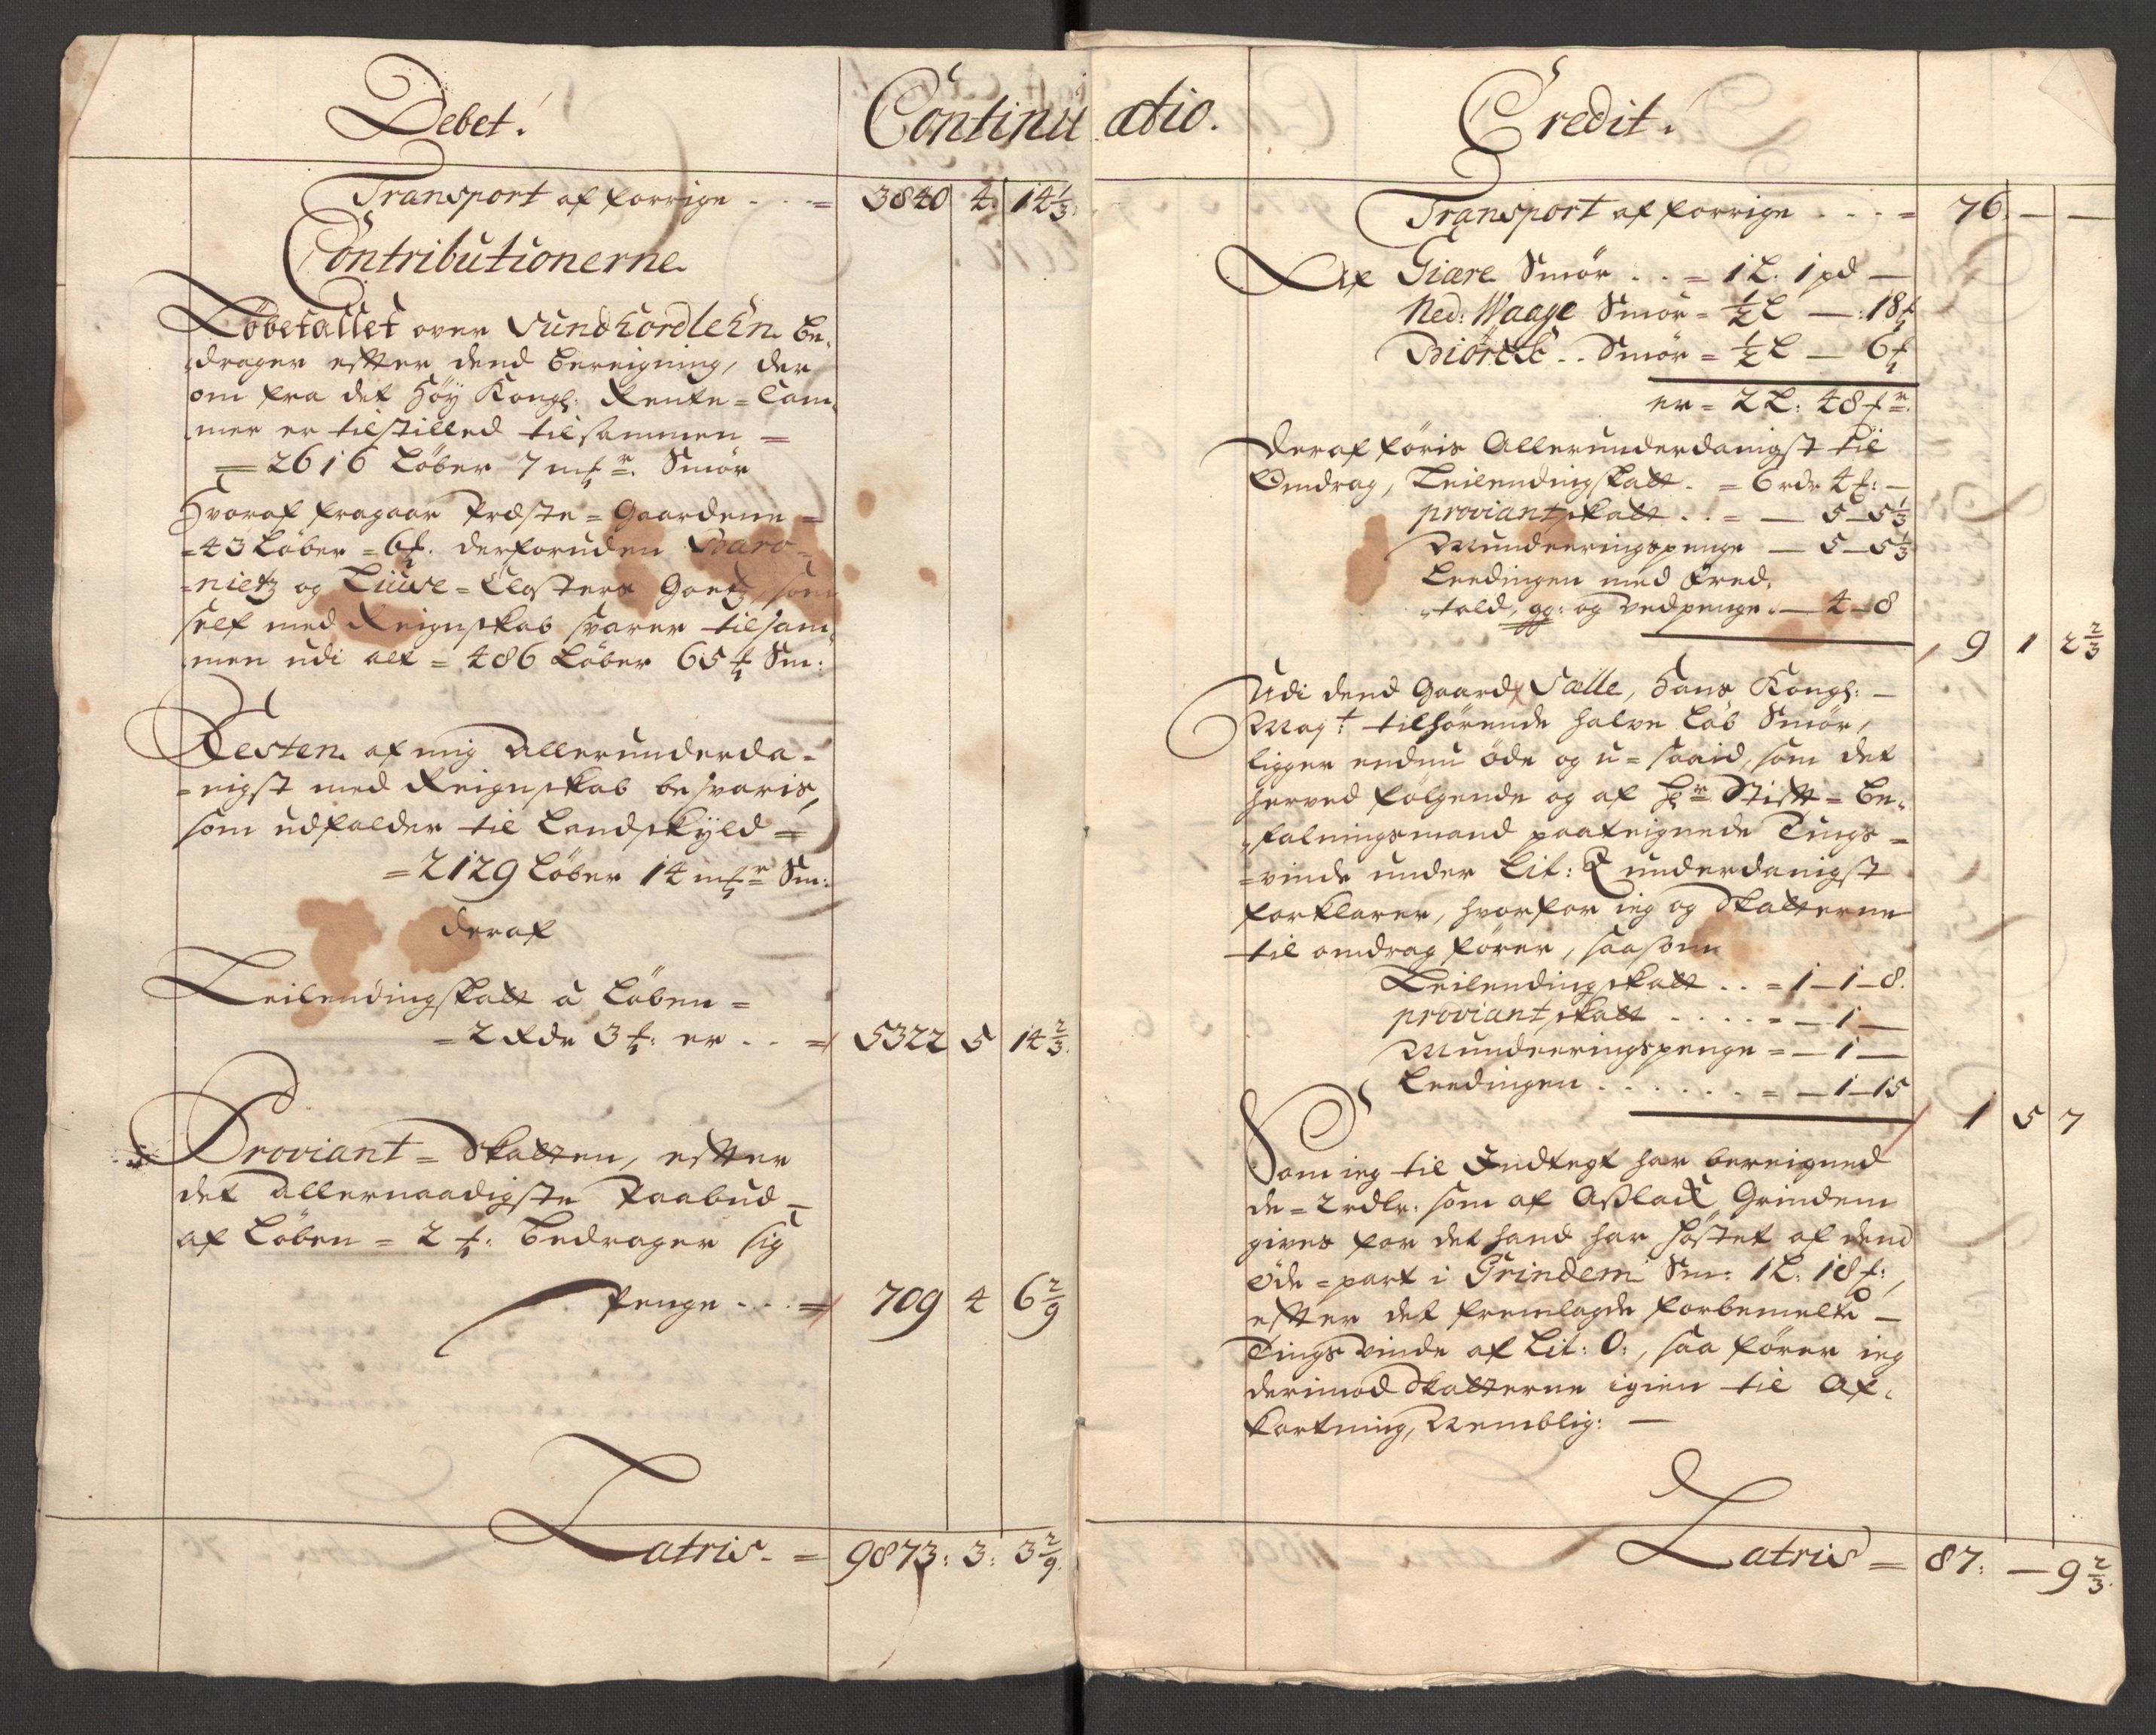 Debet.
Continu
Transport af forrige - - - = 3840 4. 14 1/3.
Contributionerne.
Løbetallet over Sundhordlehn be-
drager efter dend bereigning, der
om fra det Høy Kongl: Rente-Cam-
mer er tilstilled tilsammen =
= 2616 Løber 7 mkr. Smør
Hvoraf fragaar Præste-Gaardene =
=43 Løber = 6 . derforuden Baro-
=nietz og Liuse-Closters Goetz, som
self med Reignskab svarer tilsam-
men udi alt = 486 Løber 65 Sm:
Resten af mig allerunderda-
=nigst med Reignskab besvaris,
som udfalder til Landskyld =
= 2129 Løber 14 mkr Sm:
deraf
Leilendingskatt a Løben =
= 2 Rdr 3 : er - - = 5322 5 14 2/3.
Proviant-Skatten, efter
det allernaadigste Paabud -
af Løben = 2 : bedrager sig
Penge - - - = 709 4 6 2/9
Latris - = 9873: 3: 3 2/9.
atio.
Credit.
Transport af forrige - - - = 76. — —
Af Giære Smør - - = 1 L. 1 pd —
Ned: Waage Smør = 1/2 L —: 18
Biørck - - Smør = 1/2 L — 6
er = 2 L: 48
Deraf føris Allerunderdanigst til
Omdrag, Leilendingskatt. = 6 rdr 4 : —
proviantskatt - - = — 5 — 5 1/3
Munderingspenge — 5 — 5 1/3
Leedingen med Fred-
told, og: og vedpenge. — 4 — 8
9 1 2 2/3
Udi dend Gaard Sælle, Hans Kongl: —
Mayt: tilhørende halve Løb Smør,
ligger endnu øde og u-saaid, som det
herved følgende og af Hr Stift-be-
falningsmand paateignede Tings-
=vinde under Lit: underdanigst
forklarer, hvorfor ieg og Skatterne
til omdrag fører, saasom
Leilendingskatt - - = 1 — 1 — 8.
proviantskatt - - - - = — 1 —
Munderingspenge = — 1 —
Leedingen - - - - - - = — 1 — 15
1 5 7
Som ieg til Indtegt har bereigned
de = 2 rdlr: som af Aslack Grindem
gives for det hand har høstet af dend
øde-part i Grindem Sm: 1 L: 18 :,
efter det fremlagde forbemelte —
Tingsvinde af Lit: O:, saa fører ieg
derimod Skatterne igien til Af-
kortning, Nemblig: —
Latris = 87: — 9 2/3.